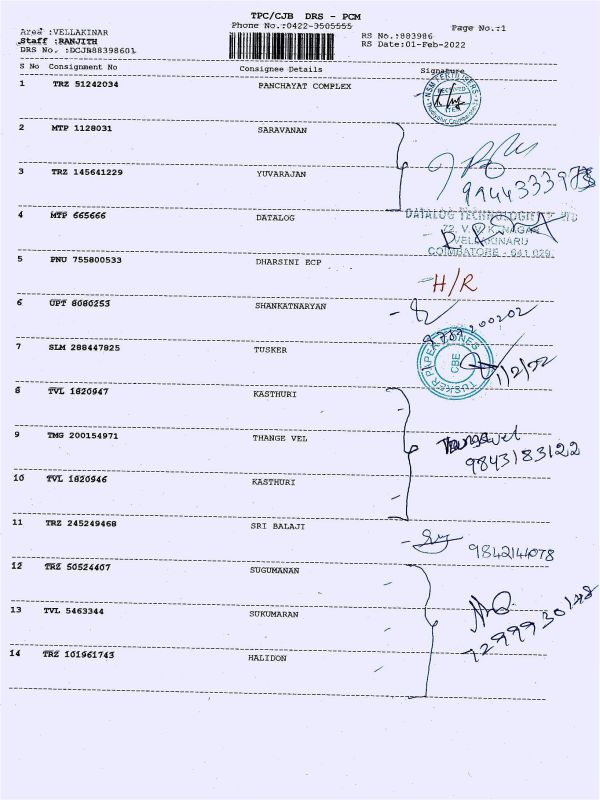 TPC/CJB DRS - PCM
Phone No.:0422-3505555
Page No.:1
Area :VELLAKINAR
Staff :RANJITH
DRS No. :DCJB88398601
RS No.:883986
RS Date:01-Feb-2022
S No Consignment No Consignee Details Signature
1 TRZ 51242034 PANCHAYAT COMPLEX
NSM FERTILISERS
RECEIVED
2 MTP 1128031 SARAVANAN
3 TRZ 145641229 YUVARAJAN
4 MTP 665666 DATALOG
DATALOG TECHNOLOGIES
COIMBATORE - 641 029.
5 PNU 755800533 DHARSINI ECP
H/R
6 UPT 8080253 SHANKATNARYAN
7 SLM 288447825 TUSKER
TUSKER PAPER CONES
CBE
1/2/22
8 TVL 1820947 KASTHURI
9 TMG 200154971 THANGE VEL
9843183122
10 TVL 1820946 KASTHURI
11 TRZ 245249468 SRI BALAJI
9842144078
12 TRZ 50524407 SUGUMANAN
13 TVL 5463344 SUKUMARAN
14 TRZ 101961743 HALIDON